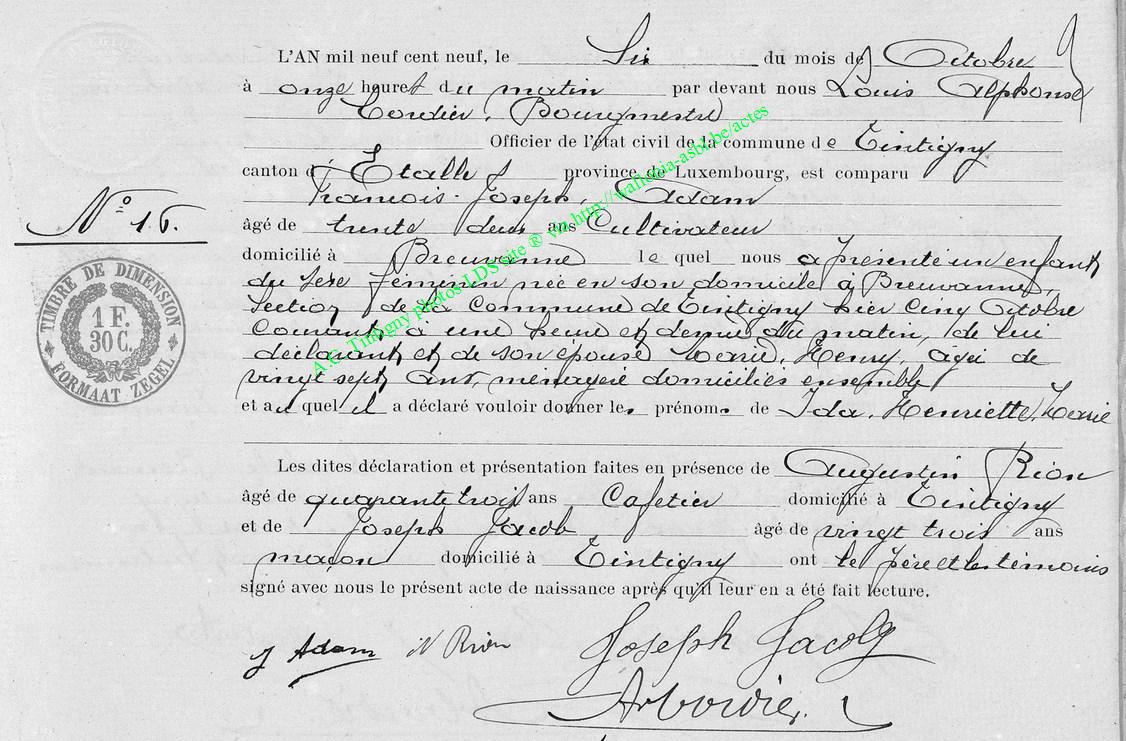 L'AN mil neuf cent neuf, le Six du mois de Octobre
à onze heures du matin par devant nous Louis Alphonse
Cordier, Bourgmestre
Officier de l'état civil de la commune de Tintigny
canton d'Etalle province de Luxembourg, est comparu
François Joseph, Adam
N° 16.
âgé de trente deux ans Cultivateur
domicilié à Breuvanne lequel nous a présenté un enfant
du sexe féminin née en son domicile à Breuvanne,
section de la Commune de Tintigny hier cinq Octobre
courant, à une heure et demie du matin, de lui
déclarant et de son épouse Marie, Henry, agée de
vingt sept ans, ménagère domiciliés ensemble
et auquel il a déclaré vouloir donner les prénoms de Ida, Henriette, Marie
Les dites déclaration et présentation faites en présence de Augustin Rion
âgé de quarante trois ans Cafetier domicilié à Tintigny
et de Joseph Jacob âgé de vingt trois ans
maçon domicilié à Tintigny ont le père et les témoins
signé avec nous le présent acte de naissance après qu'il leur en a été fait lecture.
J Adam Rion Joseph Jacob
TIMBRE DE DIMENSION
1 F.
30 C.
FORMAAT ZEGEL
A.G. Tintigny photos LDS site ® via http://wallonia-asbl.be/actes